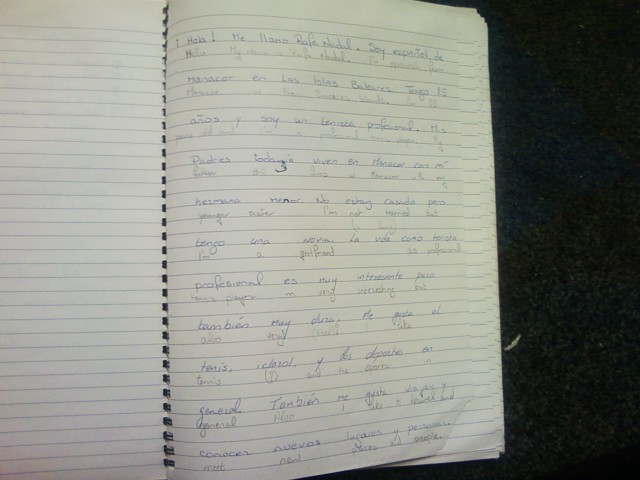 ¡Hola! Me llamo Rafa Nadal. Soy español de
Hello My name Rafa Nadal. I'm spanish from
Manacor en Las Islas Baleares. Tengo 25
Manacor in the
años y soy un tenista profesional. Mis
years old and a profesional tennis player My
Padres todavía viven en Manacor con mi
lives in Manacor with my
hermana menor. No estoy casado pero
younger sister I'm not married but
tengo una novia. La vida como tenista
I'm a girlfriend as profesional
profesional es muy interesante pero
tennis player is very interesting but
también muy dura. Me gusta el
also very I like
tenis, ¡claro!, y los deportes en
tennis and the sports in
general. También me gusta viajar y
general Also I like to travel and
conocer nuevos lugares y personas.
meet new places and people.